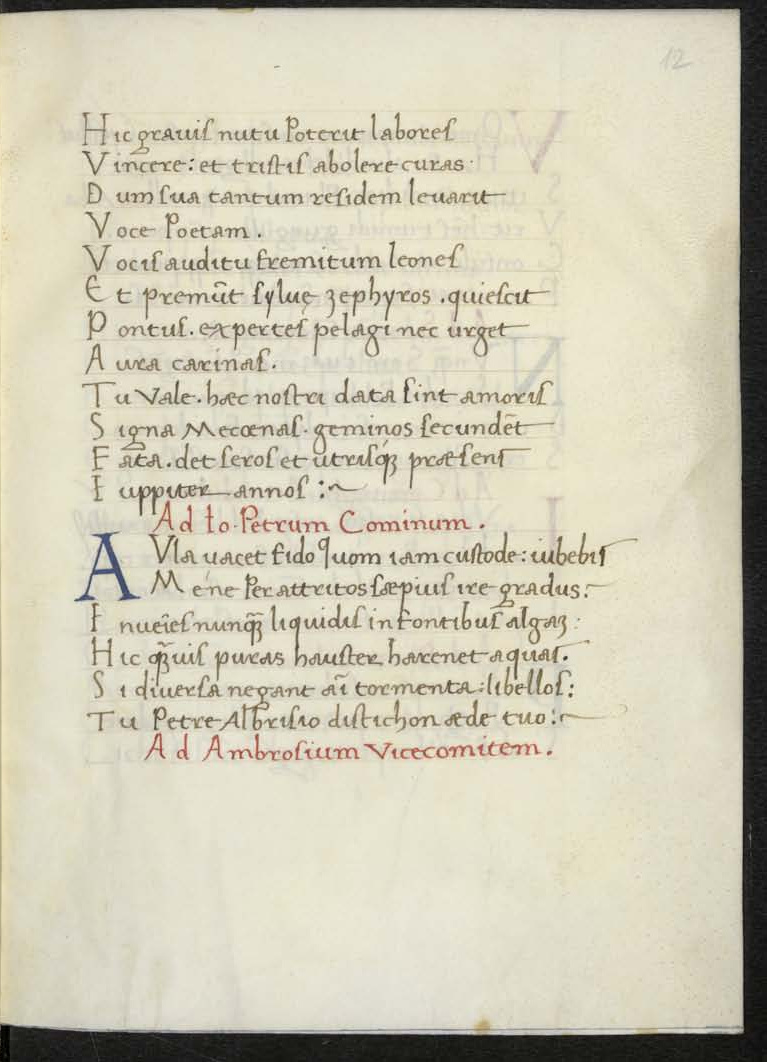 12
Hic grauiſ nutu Poterit laboreſ
Vincere: et triſtiſ abolere curas ·
Dum ſua tantum reſidem leuarit
Voce Poetam .
Vociſ auditu fremitum leoneſ
Et premūt ſyluę zephyros . quieſcit
Pontuſ . experteſ pelagi nec urget
Aura carinaſ .
Tu Vale . hæc noſtri data ſint amoriſ
Signa Mecœnaſ · geminos ſecundēt
Fata . det ſeroſ et utriſq́ꝫ præſenſ
Iuppiter annoſ :~
Ad Io · Petrum Cominum .
AVla uacet fido quom iam cuſtode : iubebiſ
Mene Per attritos ſæpiuſ ire graduſ :~
Inueīeſ nunq̄ꝫ liquidiſ in fontibuſ algaꝫ :
Hic q̄ꝫuiſ puras hauſter harenet aquaſ .
Si diuerſa negant aī tormenta : libelloſ :
Tu Petre Albriſio diſtichon æde tuo :~
Ad Ambroſium Vicecomitem .